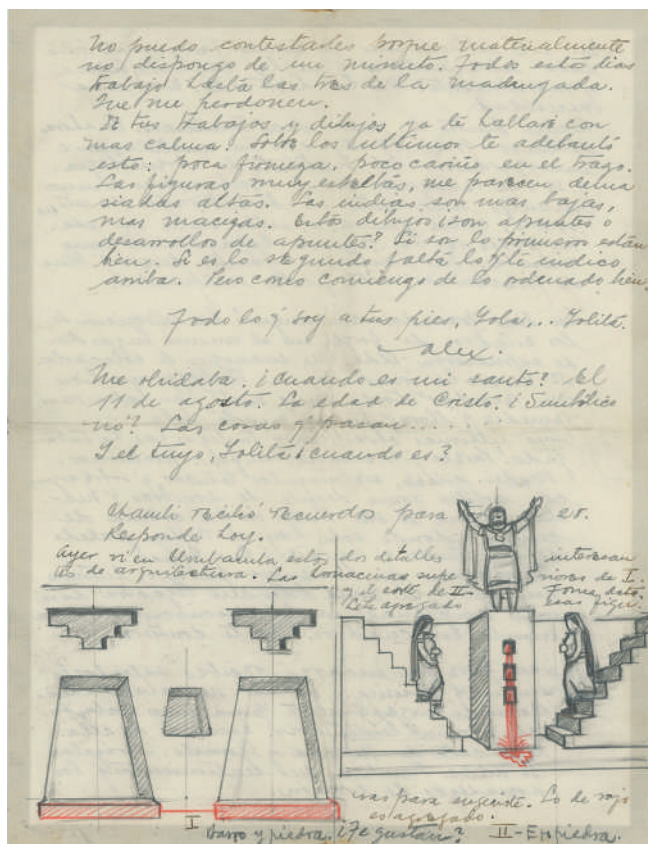 No puedo contestarles porque materialmente
no dispongo de un minuto. Todos estos dias
trabajo hasta las tres de la madrugada.
Que me perdonen.
De tus trabajos y dibujos ya te hablaré con
mas calma. Sobre los ultimos te adelanto
esto: poca firmeza, poco cariño en el trazo.
Las figuras muy esbeltas, me parecen dema
siadas altas. Las indias son mas bajas,
mas macizas. Estos dibujos ¿son apuntes o
desarrollos de apuntes? Si son lo primero están
bien. Si es lo segundo falta lo q' te indico
arriba. Pero como comienzo de lo ordenado bien.
Todo lo q' soy a tus pies, Yola... Yolita.
Alex.
Me olvidaba. ¿cuando es mi santo? El
11 de agosto. La edad de Cristo. ¿Simbólico
no? Las cosas q' pasan....
Y el tuyo, Yolita ¿cuando es?
recibió recuerdos para
Responde hoy.
Ayer vi en estos dos detalles interesan
tes de arquitectura. Las hornacinas supe riores de I.
y el corte de II. Tome
Le he agregado esas figu
ras para sugerirte. Lo de rojo
es agregado.
I
Barro y piedra. ¿Te gustan? II - En piedra.